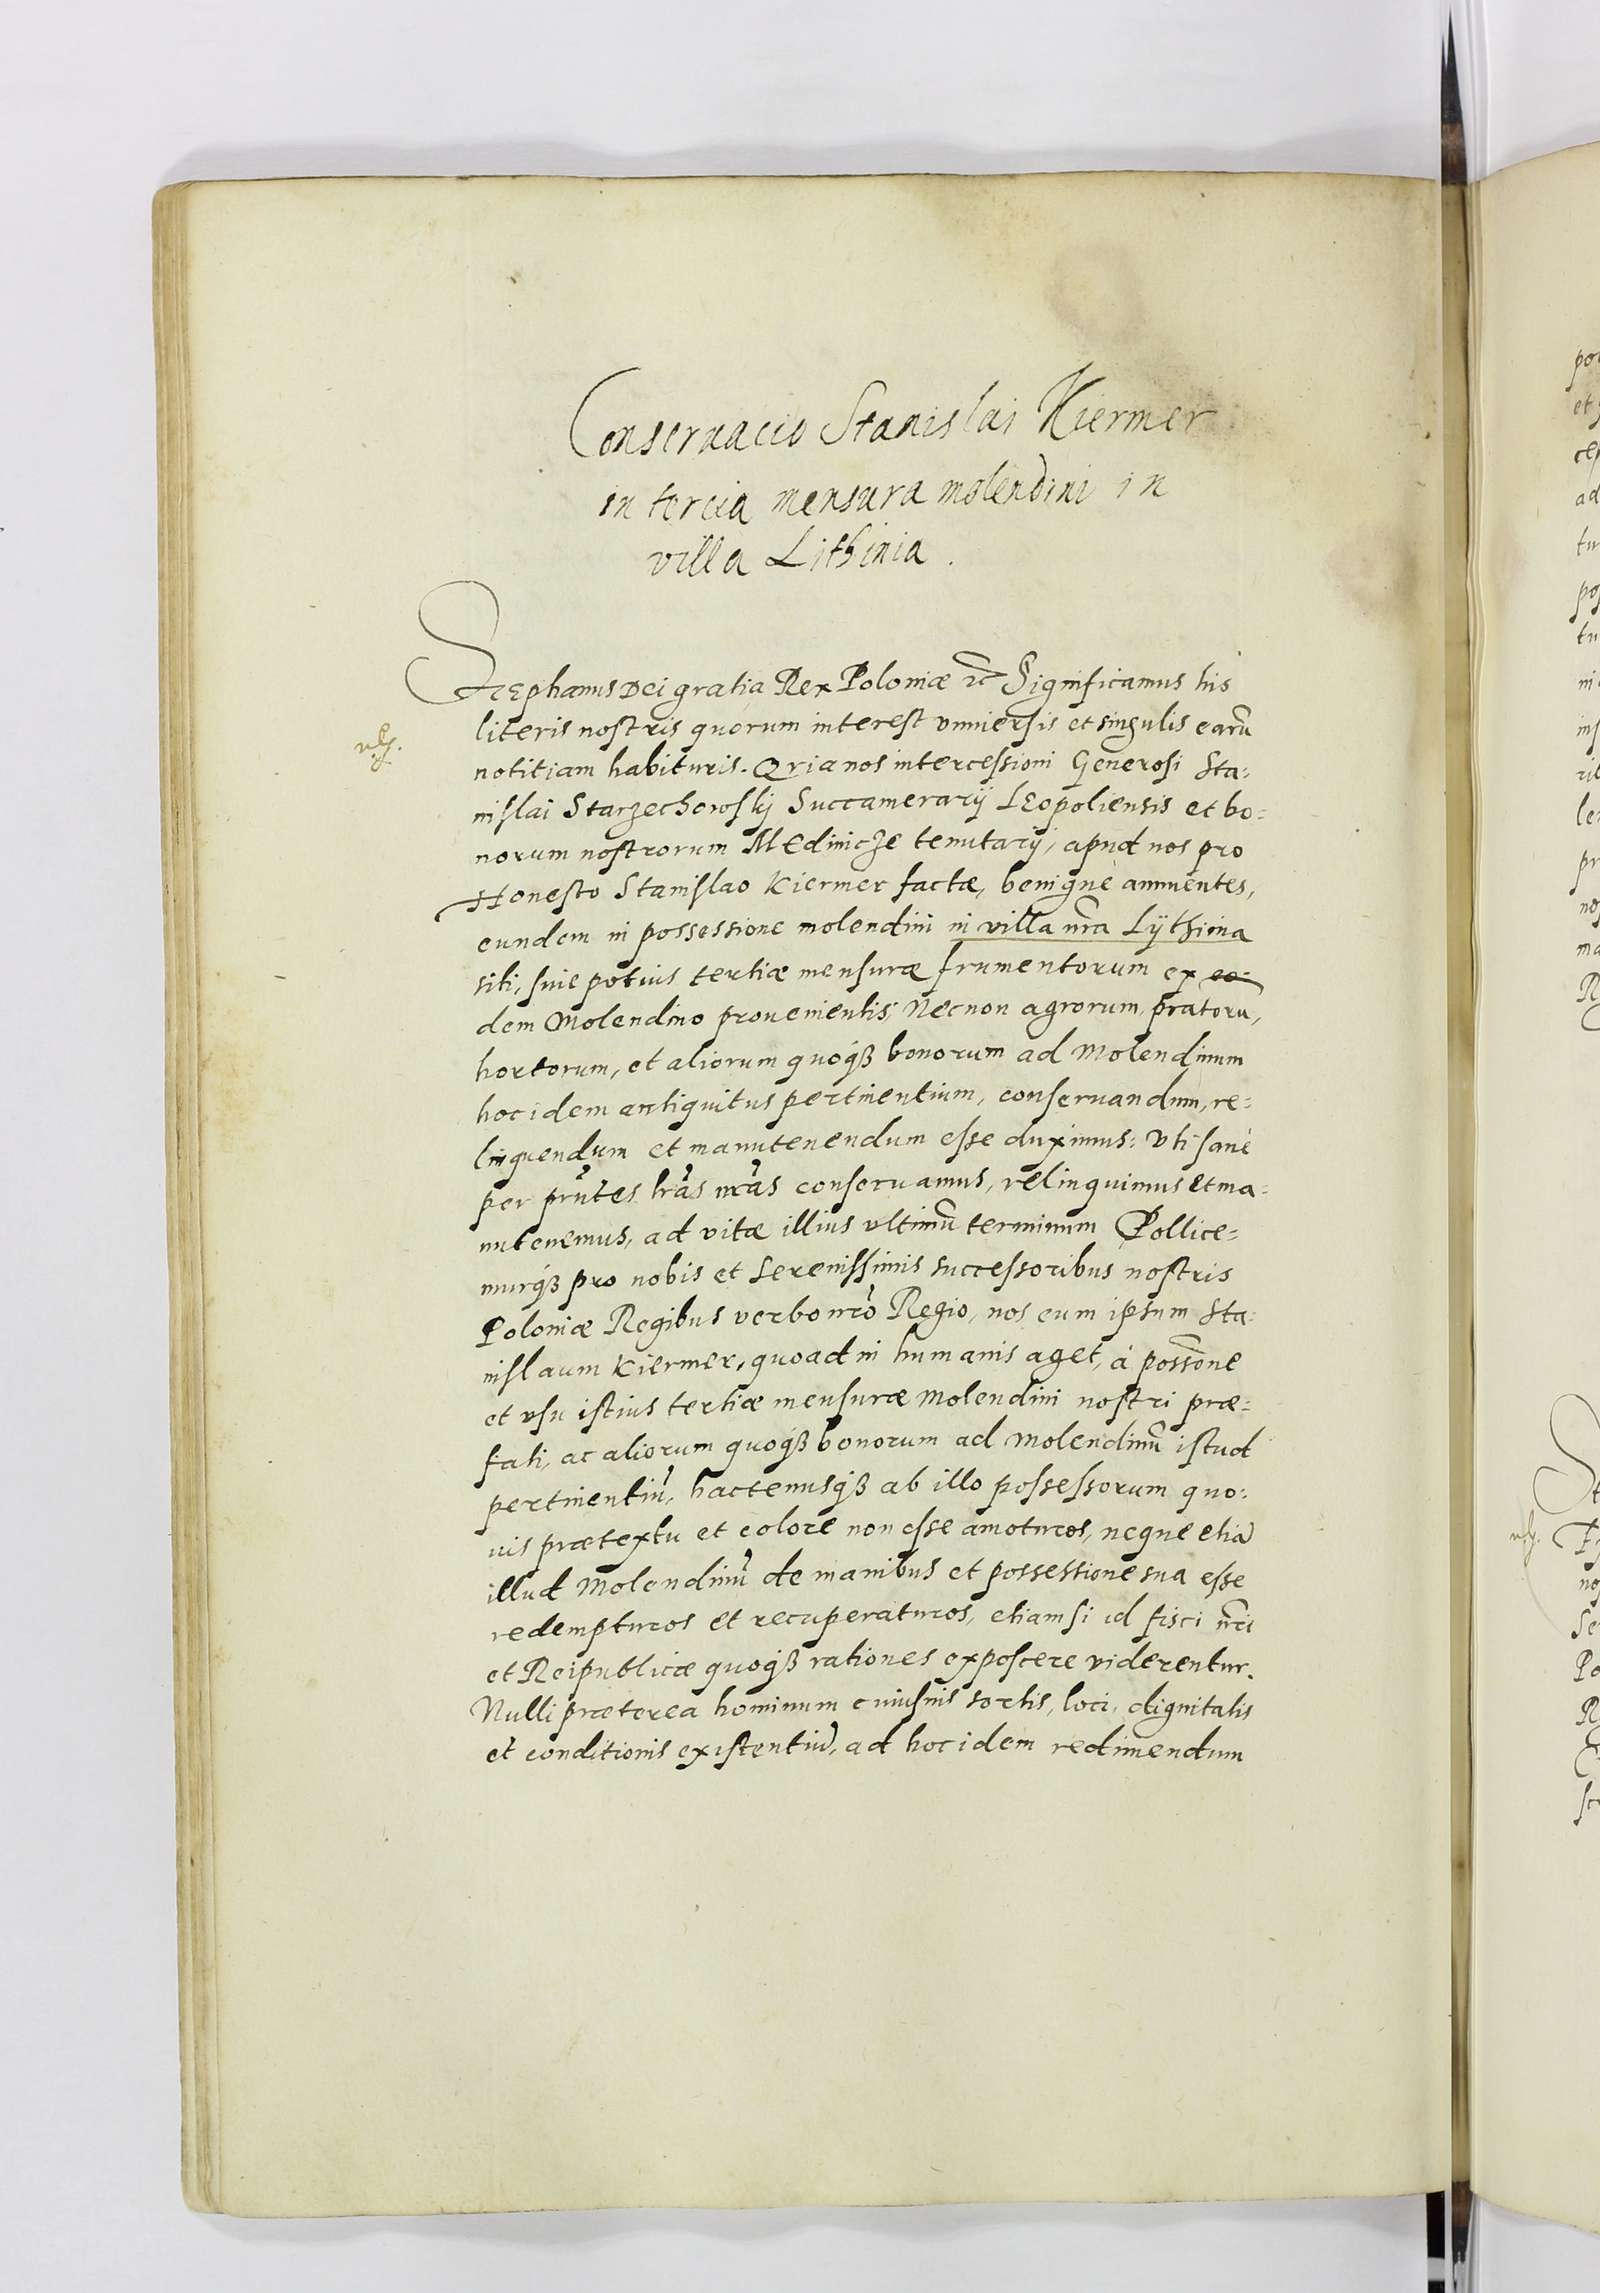 Conseruacio Stanislai Kiermer
in tercia mensura molendini in
villa Lithinia.
Stephanus Dei gratia Rex Poloniæ ꝛc Significamus his
literis nostris quorum interest vniuersis et singulis earū
notitiam habituris. Quia nos intercessioni Generosi Sta:
nislai Starzechowskj Succamerarij Leopoliensis et bo:
norum nostrorum Medinicze tenutarij, apud nos pro
Honesto Stanislao Kiermer factæ, benignè annuentes,
eundem in possessione molendini in villa nr̃a Lÿthinia
siti, siue potius tertiæ mensuræ frumentorum ex eo:
dem Molendino prouenientis, Necnon agrorum, pratorū,
hortorum, et aliorum quoqȝ bonorum ad Molendinum
hoc idem antiquitus pertinentium, conseruandum, re:
linquendum et manutenendum esse duximus: Vti sanè
per pn̄tes lr̃as nr̃as conseruamus, relinquimus et ma:
nutenemus, ad vitæ illius vltimū terminum Pollice:
murqȝ pro nobis et Serenissimis successoribus nostris
Poloniæ Regibus verbo nr̃o Regio, nos eum ipsum Sta:
nislaum Kiermer, quoad in humanis aget, à possōne
et vsu istius tertiæ mensuræ Molendini nostri præ:
fati, ac aliorum quoqȝ bonorum ad Molendinū istud
pertinentiū, hactenusqȝ ab illo possessorum quo:
uis prætextu et colore non esse amoturos, neque etiā
illud Molendinū de manibus et possessione sua esse
redempturos et recuperaturos, etiamsi id fisci nr̃i
et Reipublicæ quoqȝ rationes exposcere viderentur.
Nulli præterea hominum cuiusuis sortis, loci, dignitatis
et conditionis existentiū, ad hoc idem redimendum